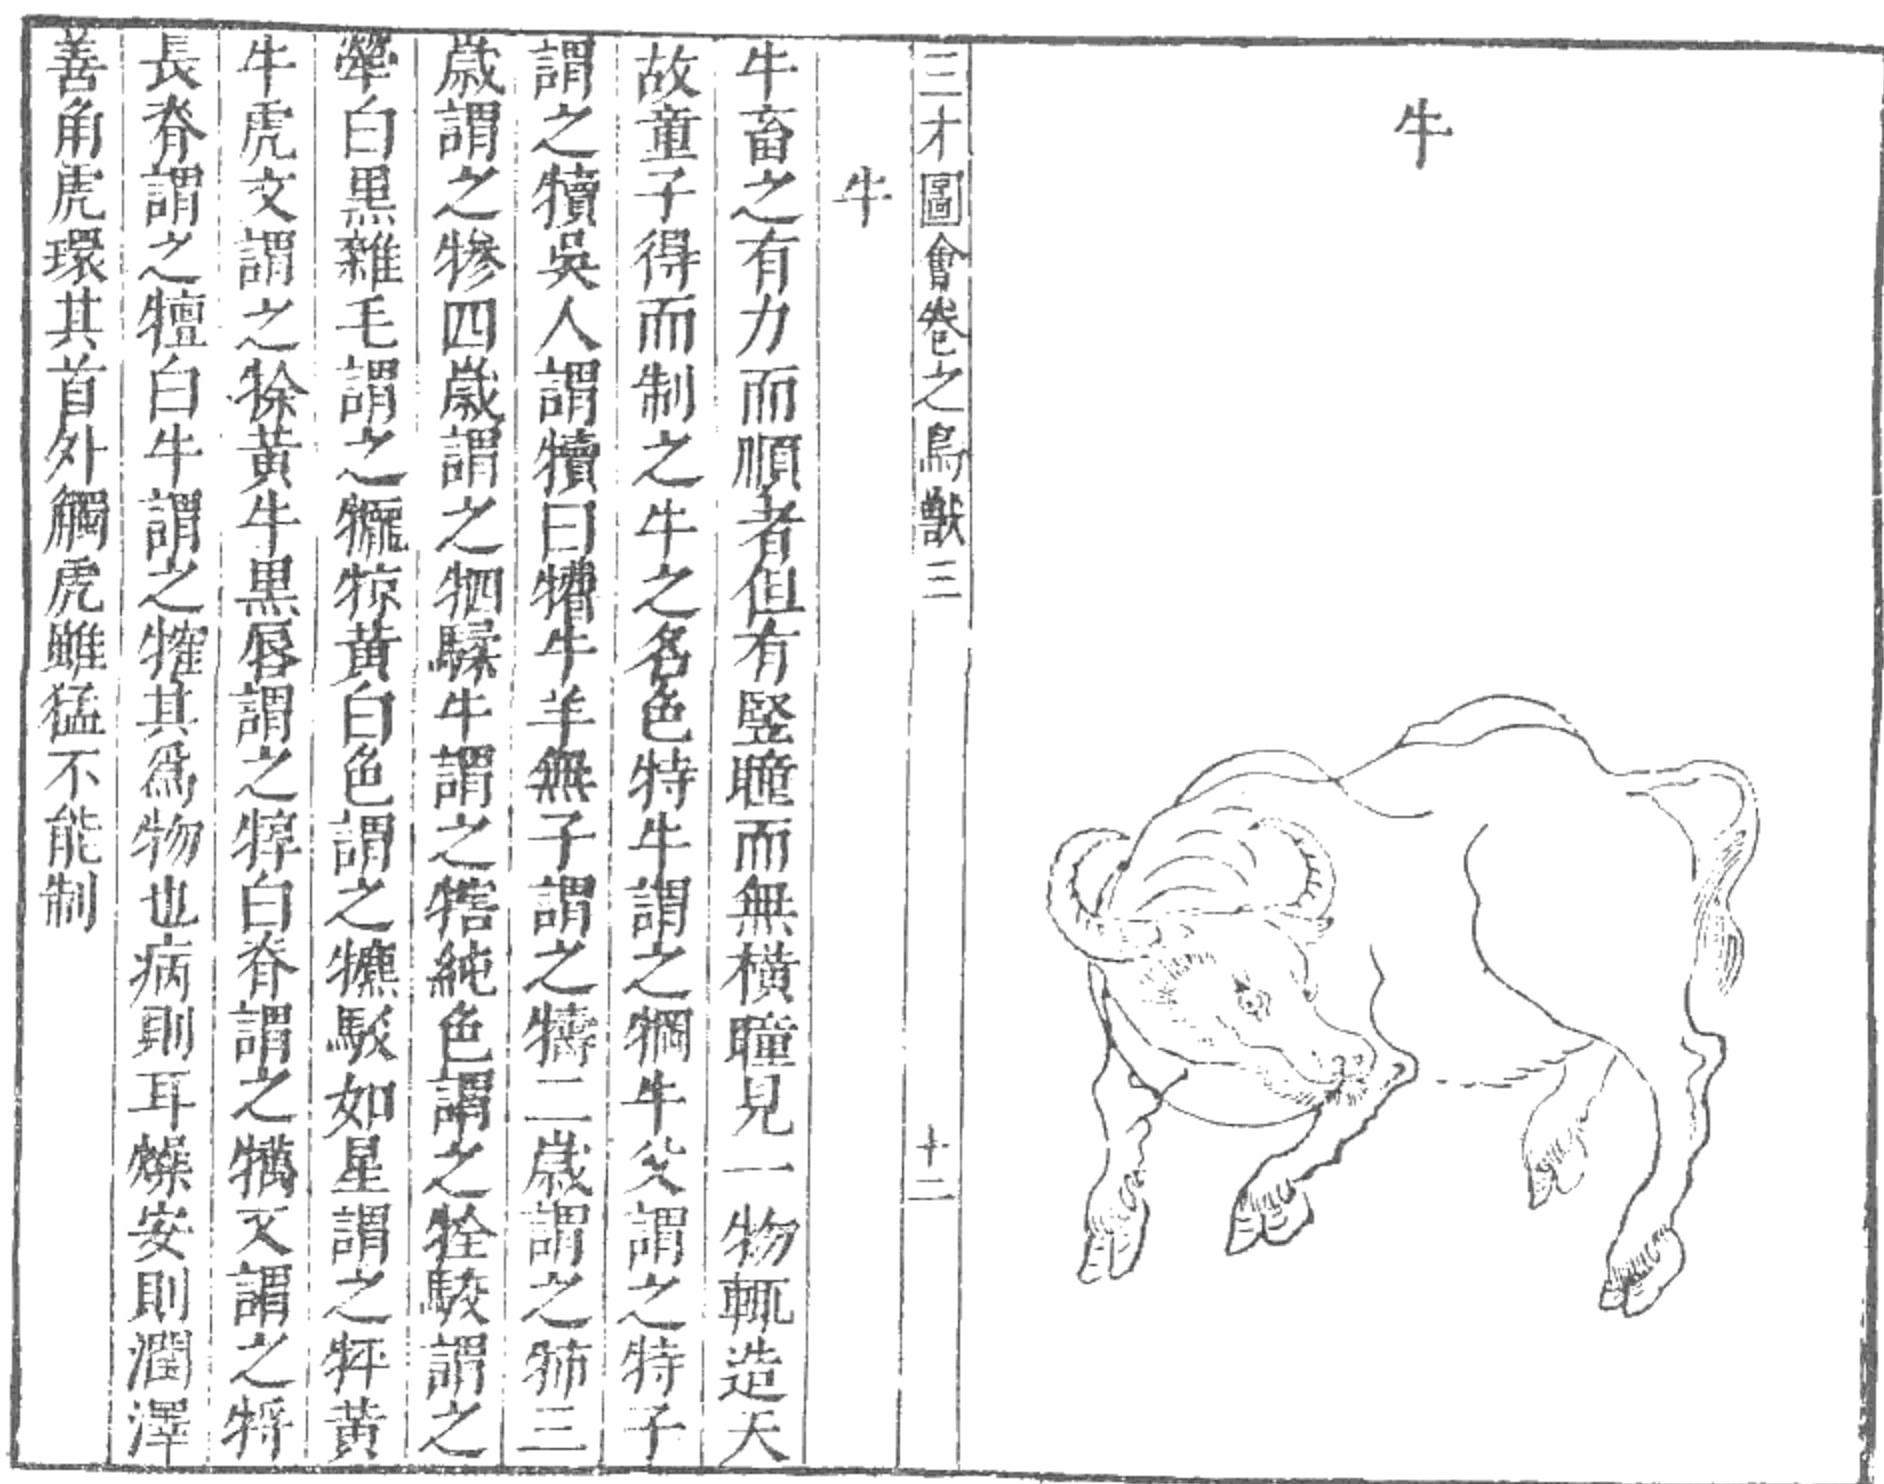 牛
三才圖會卷之鳥獸三
十二
牛
牛畜之有力而順者但有竪瞳而無橫瞳見一物輒造天
故童子得而制之牛之名色特牛謂之犅牛父謂之特子
謂之犢吳人謂犢曰㹛牛羊無子謂之犞二歲謂之㸬三
歲謂之犙四歲謂之牭騬牛謂之犗純色謂之牷駁謂之
犖白黑雜毛謂之牻㹁黃白色謂之犥駁如星謂之㸹黃
牛虎文謂之㻌黃牛黑唇謂之犉白脊謂之犡又謂之㸹
長脊謂之㹔白牛謂之㹊其爲物也病則耳燥安則潤澤
善角虎環其首外觸虎雖猛不能制